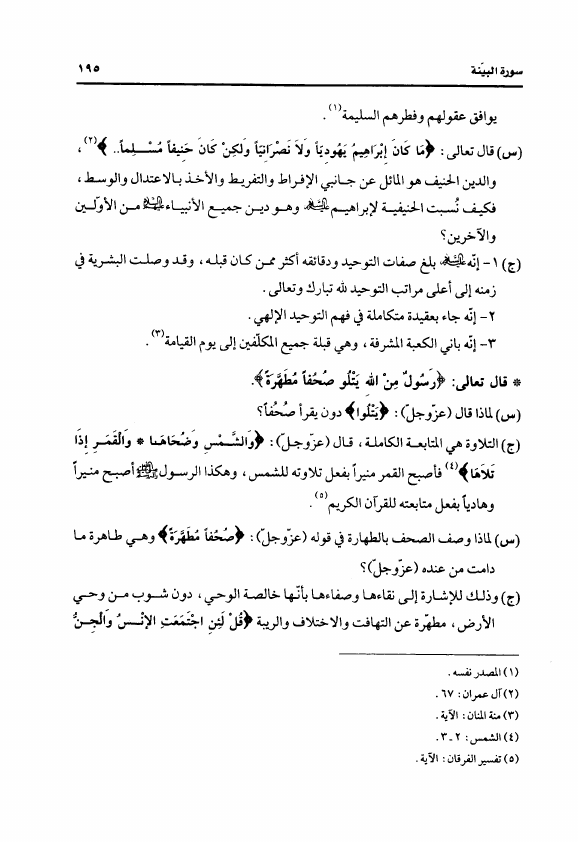 سورة البيّنة ١٩٥
يوافق عقولهم وفطرهم السليمة(١).
(س) قال تعالى: ﴿مَا كَانَ إِبْرَاهِيمُ يَهُودِيّاً وَلاَ نَصْرَانِيّاً وَلَكِنْ كَانَ حَنِيفاً مُسْلِماً..﴾(٢)،
والدين الحنيف هو المائل عن جانبي الإفراط والتفريط والأخذ بالاعتدال والوسط،
فكيف نُسبت الحنيفية لإبراهيم عليه السلام وهو دين جميع الأنبياء عليهم السلام من الأوّلين
والآخرين؟
(ج) ١- إنّه عليه السلام بلغ صفات التوحيد ودقائقه أكثر ممن كان قبله، وقد وصلت البشرية في
زمنه إلى أعلى مراتب التوحيد لله تبارك وتعالى.
٢- إنّه جاء بعقيدة متكاملة في فهم التوحيد الإلهي.
٣- إنّه باني الكعبة المشرفة، وهي قبلة جميع المكلّفين إلى يوم القيامة(٣).
* قال تعالى: ﴿رَسُولٌ مِنْ اللهِ يَتْلُو صُحُفاً مُطَهَّرَةً﴾.
(س) لماذا قال (عزّوجلّ): ﴿يَتْلُوا﴾ دون يقرأ صُحُفاً؟
(ج) التلاوة هي المتابعة الكاملة، قال (عزّوجلّ): ﴿وَالشَّمْسِ وَضُحَاهَا * وَالْقَمَرِ إِذَا
تَلاَهَا﴾(٤) فأصبح القمر منيراً بفعل تلاوته للشمس، وهكذا الرسول ﷺ أصبح منيراً
وهادياً بفعل متابعته للقرآن الكريم(٥).
(س) لماذا وصف الصحف بالطهارة في قوله (عزّوجلّ): ﴿صُحُفاً مُطَهَّرَةً﴾ وهي طاهرة ما
دامت من عنده (عزّوجلّ)؟
(ج) وذلك للإشارة إلى نقاءها وصفاءها بأنّها خالصة الوحي، دون شوب من وحي
الأرض، مطهّرة عن التهافت والاختلاف والريبة ﴿قُلْ لَئِنِ اجْتَمَعَتِ الإِنْسُ وَالْجِنُّ
(١) المصدر نفسه.
(٢) آل عمران: ٦٧.
(٣) منة المنان: الآية.
(٤) الشمس: ٢ـ٣.
(٥) تفسير الفرقان: الآية.